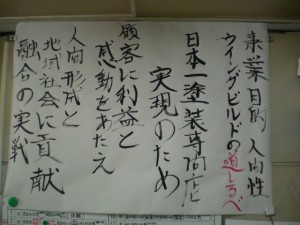 事業目的 人間性
ウイングビルドの道しるべ
日本一塗装専門店
実現のため
顧客に利益と
感動をあたえ
人間形成と
地域社会に貢献
融合の実戦